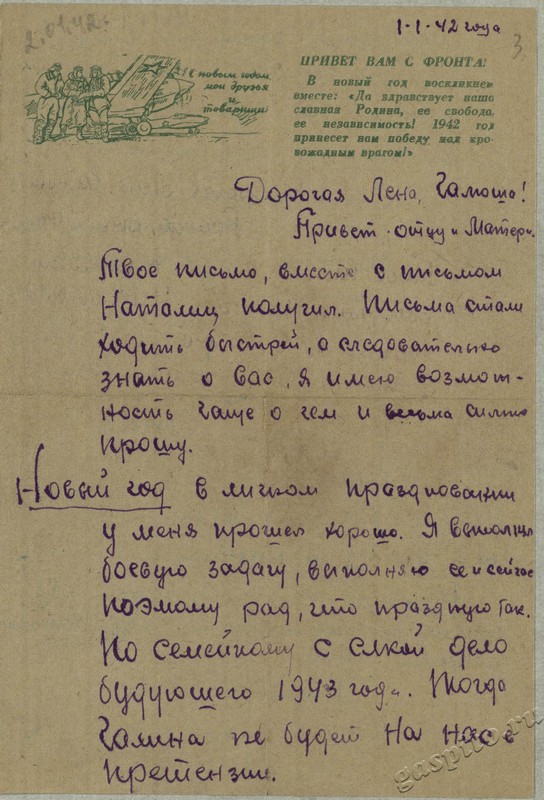 2.01.42г.
1-1-42 года
3
С новым годом,
мои друзья
и
товарищи
ПРИВЕТ ВАМ С ФРОНТА!
В новый год воскликнем
вместе: «Да здравствует наша
славная Родина, ее свобода,
ее независимость! 1942 год
принесет нам победу над кро-
вожадным врагом!»
Дорогая Лена, Галюша!
Привет отцу и Матери.
Твое письмо, вместе с письмом
Наталии получил. Письма стали
ходить быстрей, а следовательно
знать о вас, я имею возмож-
ность чаще о чем и весьма сильно
прошу.
Новый год в личном праздновании
у меня прошел хорошо. Я выполнял
боевую задачу, выполняю ее и сейчас
поэтому рад, что праздную так.
По семейному с елкой дело
будующего 1943 года. Тогда
Галина не будет на нас в
претензии.
gaspiro.ru